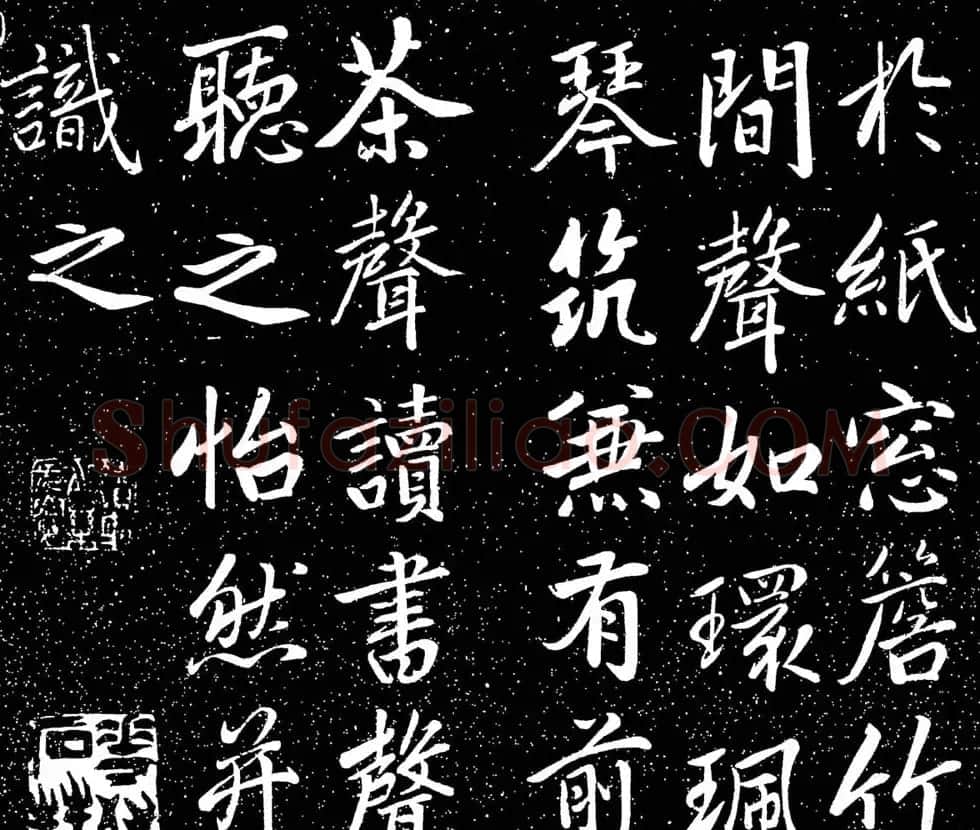 於紙窓簷竹
間聲如環珮
琴筑無有前
茶聲讀書聲
聽之怡然并
識之
Shufaziliao.COM